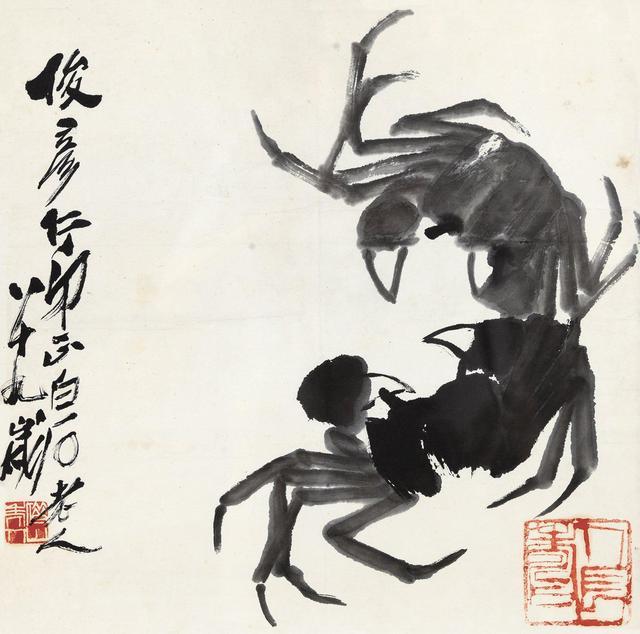 俊彦仁弟正白石老人
八十九歲